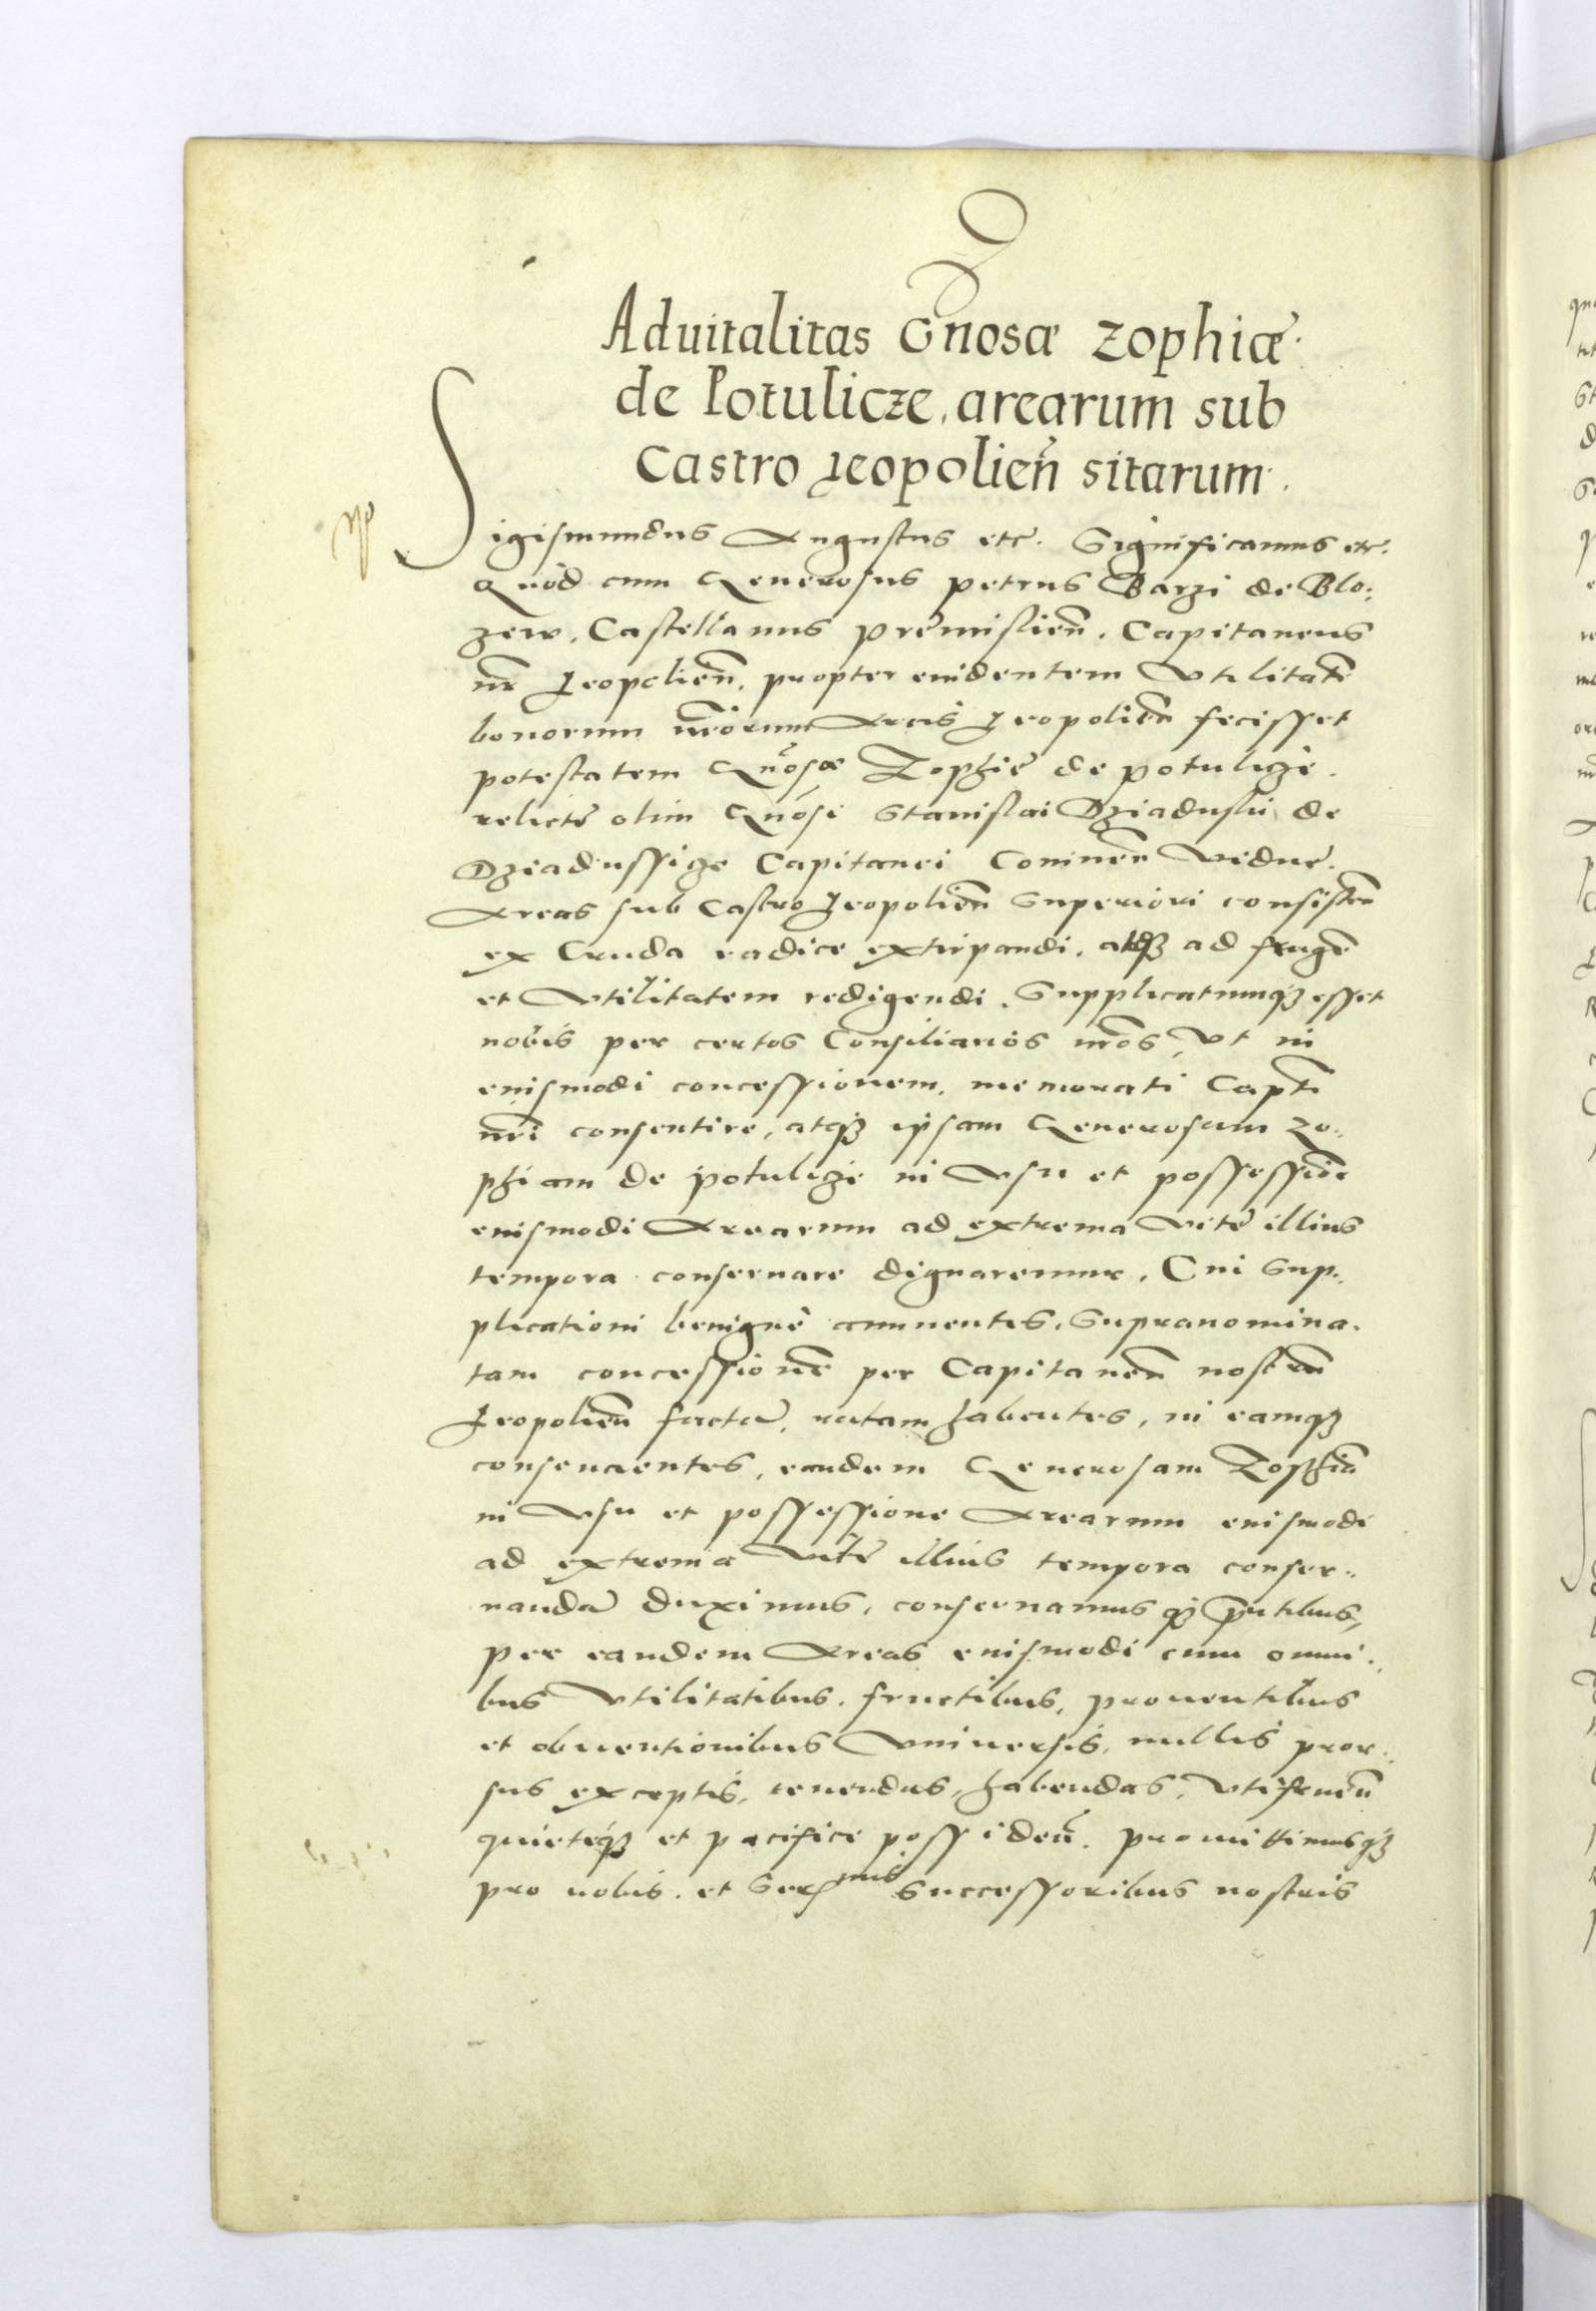 Aduitalitas Gnosæ Zophiæ
de Potulicze, arearum sub
Castro Leopolien̄ sitarum.
Sigismundus Augustus etc. Significamus etc.
Quod cum Generosus Petrus Barzi de Blo:
zew, Castellanus Premislien̄. Capitaneus
nr̄ Leopolien̄. propter euidentem vtilitatē
bonorum nr̄orum Arcis Leopolien̄ fecisset
potestatem Gn̄osæ Zophie de Potulicze.
relicte olim Gnosi Stanislai Dziaduski de
Dziadussicze Capitanei Coninen̄ vidue.
Areas sub Castro Leopolien̄ Superiori consisten̄
ex Cruda radice extirpandi, atq3 ad frugē
et vtilitatem redigendi. Supplicatumq3 esset
nobis per certos Consiliarios nr̄os, vt in
euismodi concessionem, memorati Captī
nr̄i consentire, atq3 ipsam Generosam Zo:
phiam de Potulicze in vsu et possessiōe
euismodi Arearum ad extrema vite illius
tempora conseruare dignaremur. Cui Sup:
plicationi benigne annuentes, Supranomina:
tam concessionē per Capitaneū nostrū
Leopolien̄ factā, ratam habentes, in eamq3
consencientes, eandem Generosam Zophiā
in vsu et possessione Arearum euismodi
ad extrema vite illius tempora conser:
uandā duximus, conseruamus q3 pn̄tibus,
per eandem Areas euismodi cum omni:
bus vtilitatibus, fructibus, prouentibus
et obuentionibus vniuersis, nullis pror:
sus exceptis, tenendas, habendas, vtifruen̄
quieteq3 et pacifice possiden̄. promittimusq3
pro nobis. et Sermis Successoribus nostris